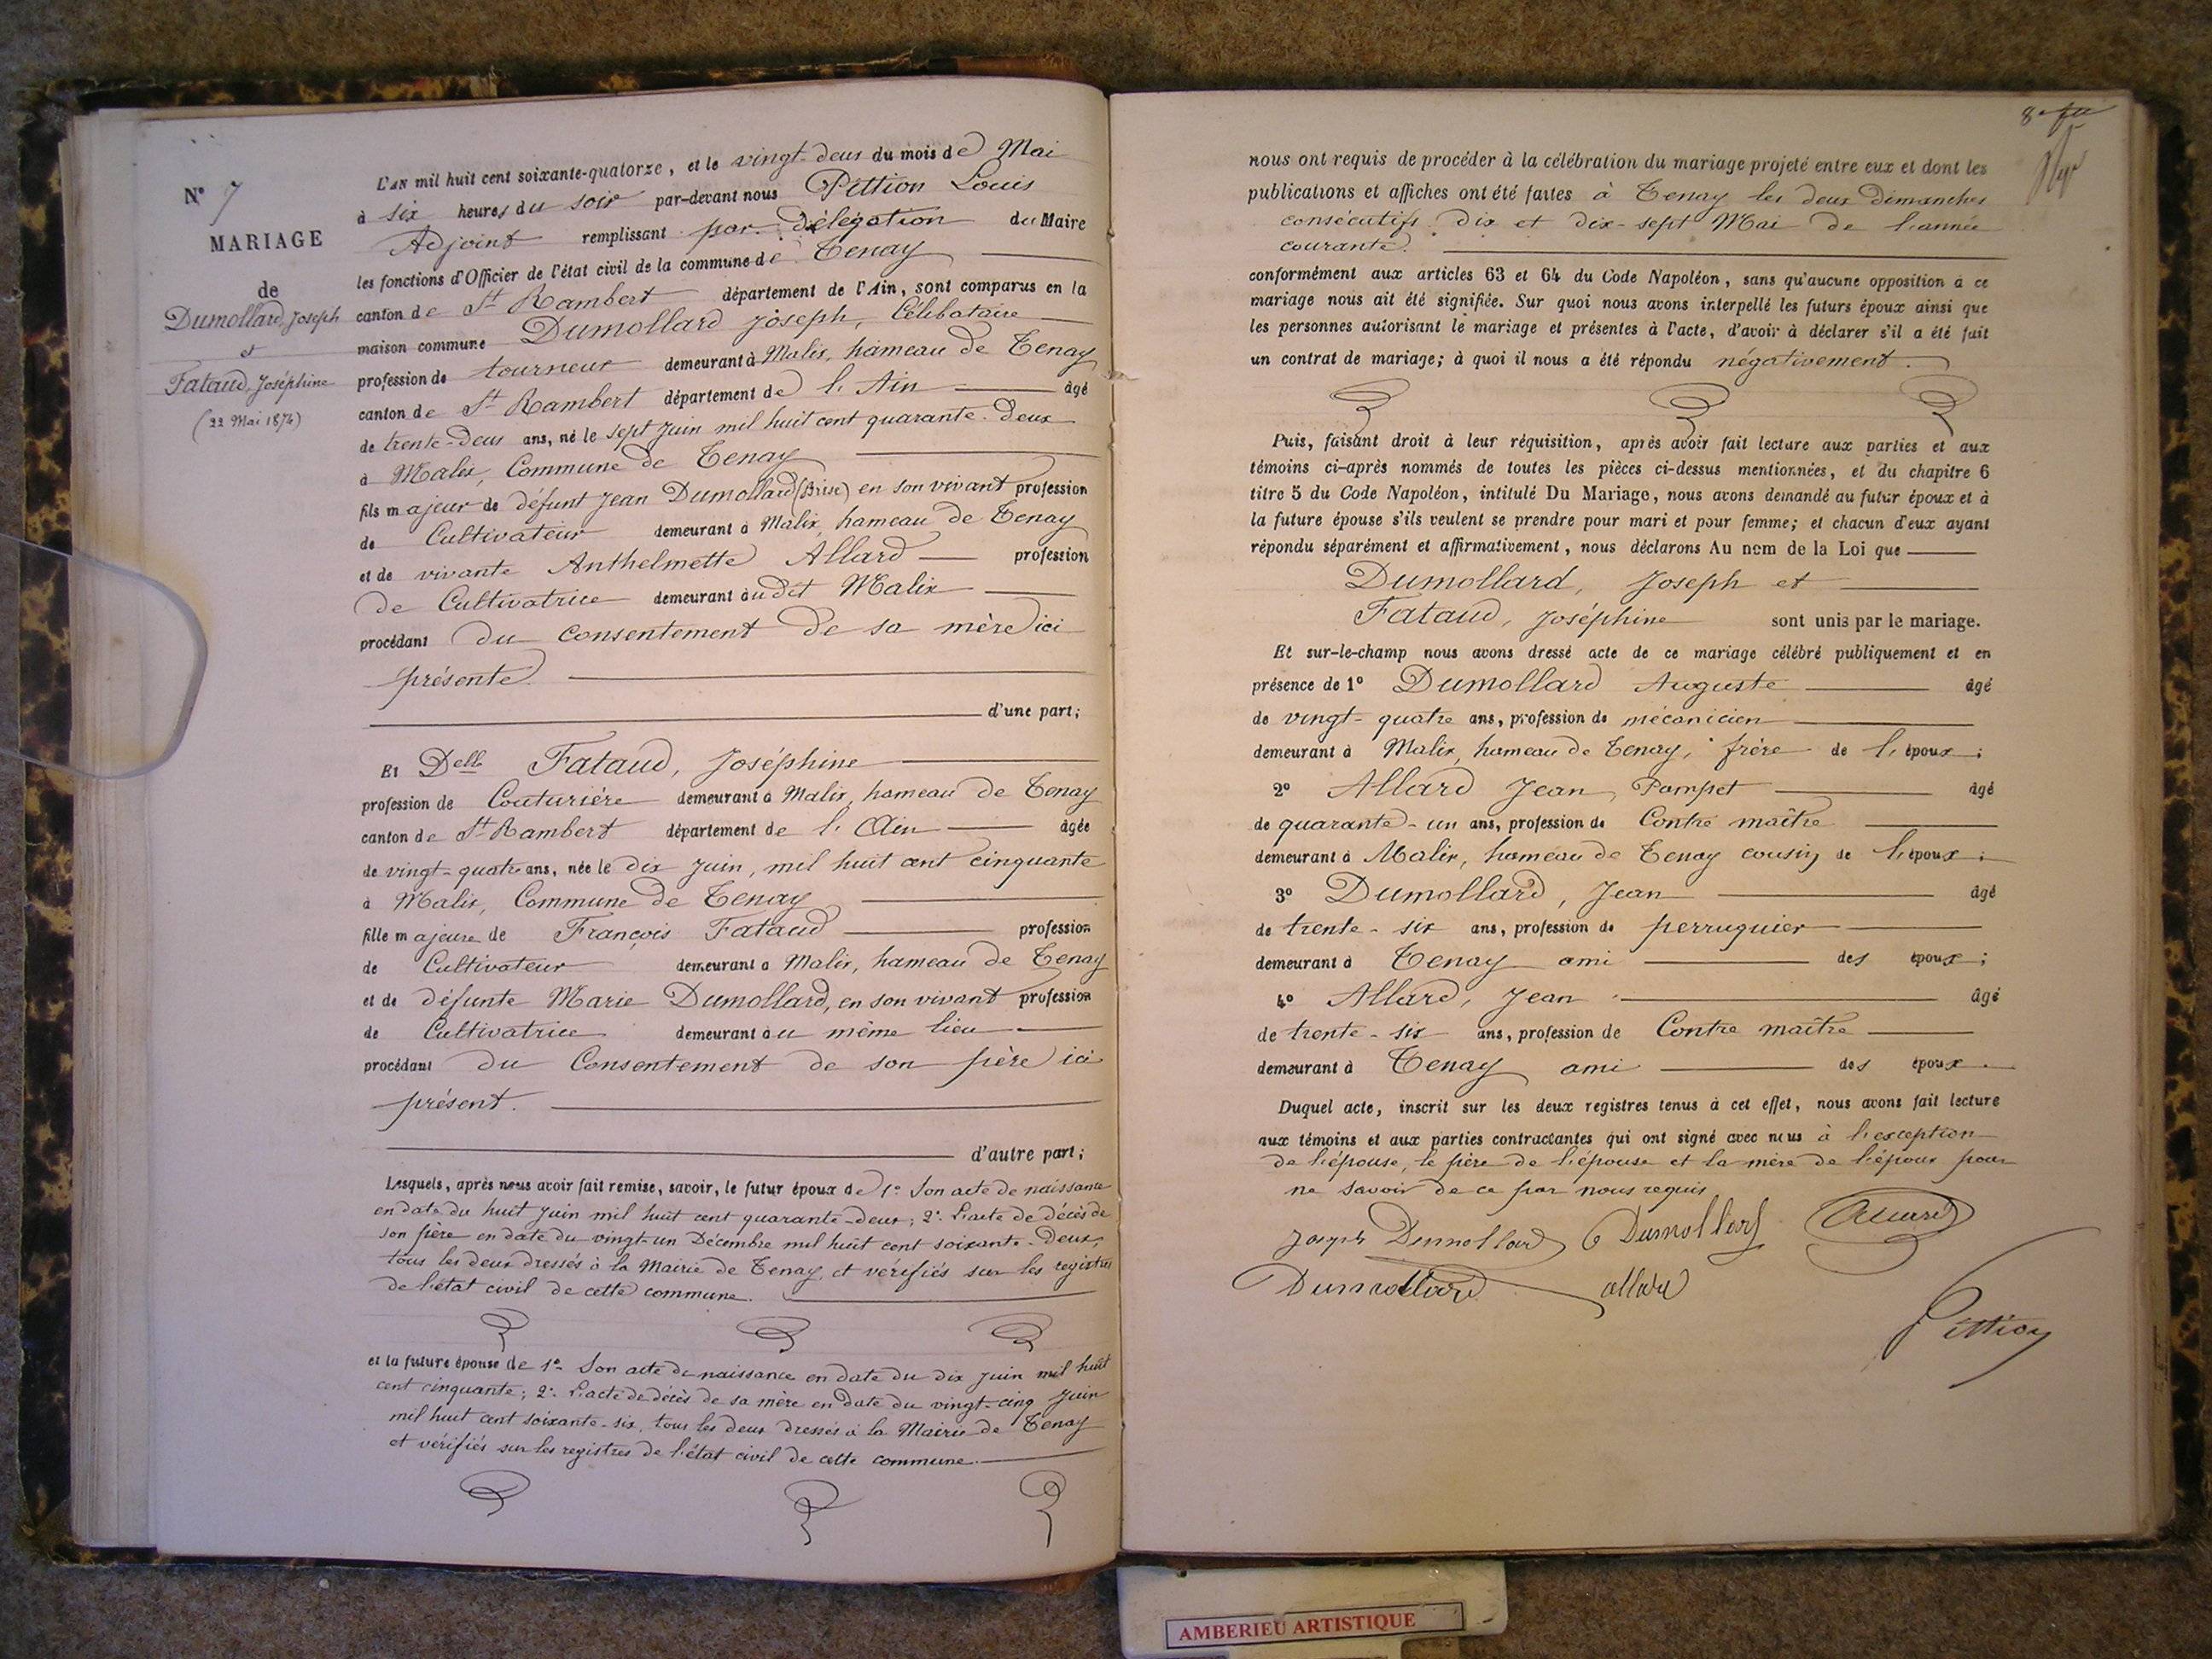 N° 7
MARIAGE
de
Dumollard, Joseph
et
Fataud, Joséphine
(22 Mai 1874)
L'AN mil huit cent soixante-quatorze, et le vingt-deux du mois de Mai
à six heures du soir par-devant nous Pittion Louis
Adjoint remplissant par délégation du Maire
les fonctions d'Officier de l'état civil de la commune de Tenay
canton de St Rambert département de l'Ain, sont comparus en la
maison commune Dumollard Joseph, Célibataire
profession de tourneur demeurant à Malix, hameau de Tenay
canton de St Rambert département de l'Ain âgé
de trente-deux ans, né le sept Juin mil huit cent quarante-deux
à Malix, Commune de Tenay
fils majeur de défunt Jean Dumollard (Brise) en son vivant profession
de Cultivateur demeurant à Malix, hameau de Tenay
et de vivante Anthelmette Allard profession
de Cultivatrice demeurant audit Malix
procédant du consentement de sa mère ici
présente.
d'une part;
Et Delle Fataud, Joséphine
profession de Couturière demeurant à Malix, hameau de Tenay
canton de St Rambert département de l'Ain âgée
de vingt-quatre ans, née le dix Juin, mil huit cent cinquante
à Malix, Commune de Tenay
fille majeure de François Fataud profession
de Cultivateur demeurant à Malix, hameau de Tenay
et de défunte Marie Dumollard, en son vivant profession
de Cultivatrice demeurant au même lieu
procédant du Consentement de son père ici
présent.
d'autre part;
Lesquels, après nous avoir fait remise, savoir, le futur époux de 1° Son acte de naissance
en date du huit Juin mil huit cent quarante-deux; 2° L'acte de décès de
son père en date du vingt-un Décembre mil huit cent soixante-deux,
tous les deux dressés à la Mairie de Tenay, et vérifiés sur les registres
de l'état civil de cette commune.
et la future épouse de 1° Son acte de naissance en date du dix Juin mil huit
cent cinquante; 2° L'acte de décès de sa mère en date du vingt-cinq Juin
mil huit cent soixante-six, tous les deux dressés à la Mairie de Tenay
et vérifiés sur les registres de l'état civil de cette commune.
nous ont requis de procéder à la célébration du mariage projeté entre eux et dont les
publications et affiches ont été faites à Tenay les deux dimanches
consécutifs dix et dix-sept Mai de l'année
courante.
conformément aux articles 63 et 64 du Code Napoléon, sans qu'aucune opposition à ce
mariage nous ait été signifiée. Sur quoi nous avons interpellé les futurs époux ainsi que
les personnes autorisant le mariage et présentes à l'acte, d'avoir à déclarer s'il a été fait
un contrat de mariage; à quoi il nous a été répondu négativement.
Puis, faisant droit à leur réquisition, après avoir fait lecture aux parties et aux
témoins ci-après nommés de toutes les pièces ci-dessus mentionnées, et du chapitre 6
titre 5 du Code Napoléon, intitulé Du Mariage, nous avons demandé au futur époux et à
la future épouse s'ils veulent se prendre pour mari et pour femme; et chacun d'eux ayant
répondu séparément et affirmativement, nous déclarons Au nom de la Loi que
Dumollard, Joseph et
Fataud, Joséphine sont unis par le mariage.
Et sur-le-champ nous avons dressé acte de ce mariage célébré publiquement et en
présence de 1° Dumollard Auguste âgé
de vingt-quatre ans, profession de mécanicien
demeurant à Malix, hameau de Tenay, frère de l'époux;
2° Allard Jean, Pompet âgé
de quarante-un ans, profession de Contre maître
demeurant à Malix, hameau de Tenay cousin de l'époux;
3° Dumollard, Jean âgé
de trente-six ans, profession de perruquier
demeurant à Tenay ami des époux;
4° Allard, Jean âgé
de trente-six ans, profession de Contre maître
demeurant à Tenay ami des époux.
Duquel acte, inscrit sur les deux registres tenus à cet effet, nous avons fait lecture
aux témoins et aux parties contractantes qui ont signé avec nous à l'exception
de l'épouse, le père de l'épouse et la mère de l'époux pour
ne savoir de ce par nous requis
Joseph Dumollard Dumollard Allard
Dumollard allard
Pittion
AMBERIEU ARTISTIQUE